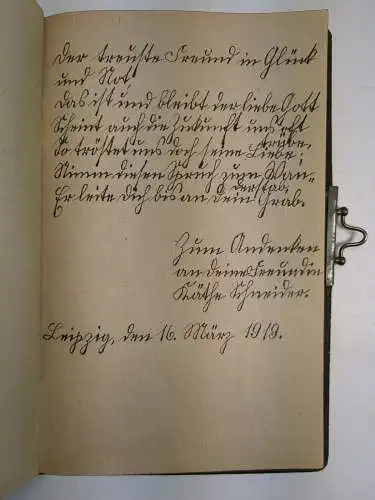 Der treuste Freund in Glück
und Not,
Das ist und bleibt der liebe Gott
Scheint auch die Zukunft uns oft
trübe,
So tröstet uns doch seine Liebe;
Nimm diesen Spruch zum Wan-
derstab,
Er leite Dich bis an dein Grab.
Zum Andenken
an deine Freundin
Käthe Schneider.
Leipzig, den 16. März 1919.